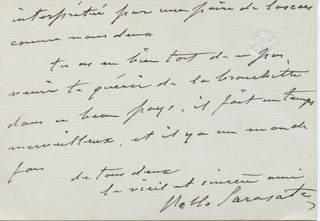 interprétée par une paire de lascars
comme nous deux
tu as eu bien tort de ne pas
venir te guérir de la bronchitte
dans ce beau pays, il fait un temps
merveilleux, et il y a un monde
fou
de tous deux
le vieil et sincère ami
Pablo Sarasate